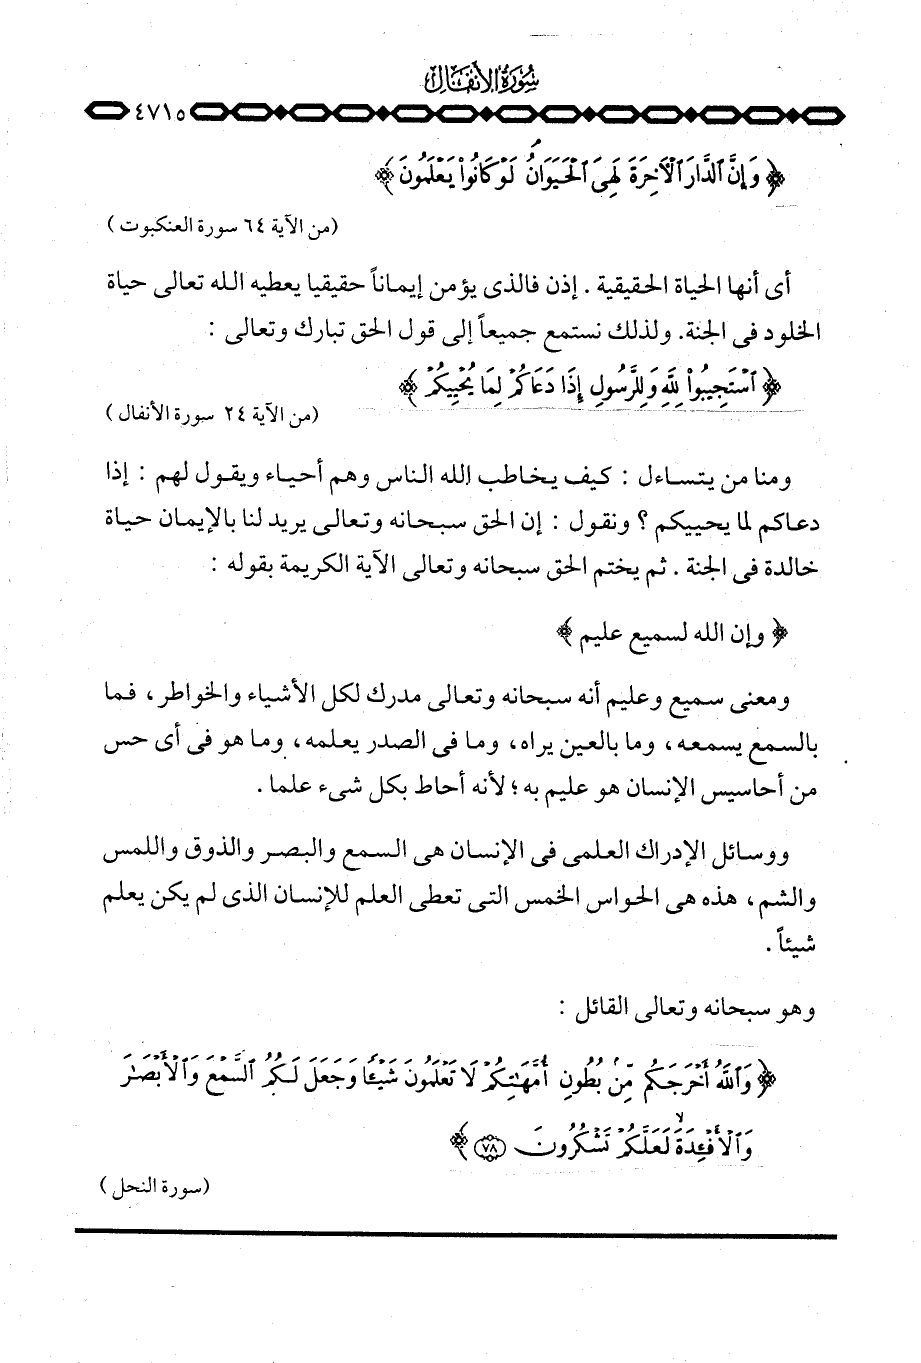 سُورَةُ الأَنفَالِ
٤٧١٥
﴿ وَإِنَّ ٱلدَّارَ ٱلْآخِرَةَ لَهِىَ ٱلْحَيَوَانُ ۚ لَوْ كَانُوا۟ يَعْلَمُونَ ﴾
(من الآية ٦٤ سورة العنكبوت )
أى أنها الحياة الحقيقية . إذن فالذى يؤمن إيماناً حقيقيا يعطيه الله تعالى حياة
الخلود فى الجنة. ولذلك نستمع جميعاً إلى قول الحق تبارك وتعالى :
﴿ ٱسْتَجِيبُوا۟ لِلَّهِ وَلِلرَّسُولِ إِذَا دَعَاكُمْ لِمَا يُحْيِيكُمْ ﴾
(من الآية ٢٤ سورة الأنفال )
ومنا من يتساءل : كيف يخاطب الله الناس وهم أحياء ويقول لهم : إذا
دعاكم لما يحييكم ؟ ونقول : إن الحق سبحانه وتعالى يريد لنا بالإيمان حياة
خالدة فى الجنة . ثم يختم الحق سبحانه وتعالى الآية الكريمة بقوله :
﴿ وإن الله لسميع عليم ﴾
ومعنى سميع وعليم أنه سبحانه وتعالى مدرك لكل الأشياء والخواطر ، فما
بالسمع يسمعه، وما بالعين يراه، وما فى الصدر يعلمه، وما هو فى أى حس
من أحاسيس الإنسان هو عليم به ؛ لأنه أحاط بكل شىء علما .
ووسائل الإدراك العلمى فى الإنسان هى السمع والبصر والذوق واللمس
والشم، هذه هى الحواس الخمس التى تعطى العلم للإنسان الذى لم يكن يعلم
شيئاً .
وهو سبحانه وتعالى القائل :
﴿ وَٱللَّهُ أَخْرَجَكُم مِّنۢ بُطُونِ أُمَّهَٰتِكُمْ لَا تَعْلَمُونَ شَيْـًٔا وَجَعَلَ لَكُمُ ٱلسَّمْعَ وَٱلْأَبْصَٰرَ
وَٱلْأَفْـِٔدَةَ ۙ لَعَلَّكُمْ تَشْكُرُونَ ٧٨ ﴾
(سورة النحل )